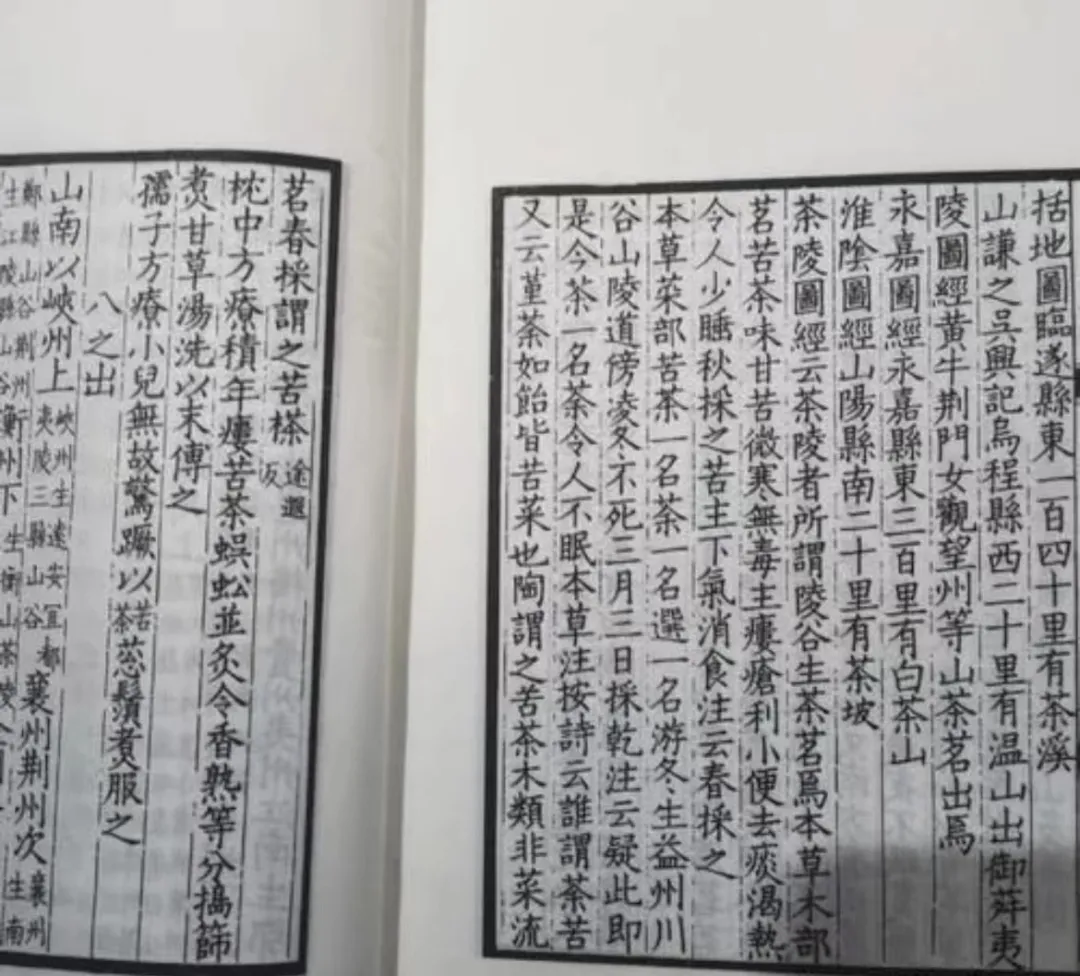 括地圖臨遂縣東一百四十里有茶溪
山謙之吳興記烏程縣西二十里有温山出御荈夷
陵圖經黃牛荆門女觀望州等山茶茗出焉
永嘉圖經永嘉縣東三百里有白茶山
淮陰圖經山陽縣南二十里有茶坡
茶陵圖經云茶陵者所謂陵谷生茶茗焉本草木部
茗苦茶味甘苦微寒無毒主瘻瘡利小便去痰渴熱
令人少睡秋採之苦主下氣消食注云春採之
本草菜部苦茶一名荼一名選一名游冬生益州川
谷山陵道傍凌冬不死三月三日採乾注云疑此即
是今茶一名荼令人不眠本草注按詩云誰謂荼苦
又云堇荼如飴皆苦菜也陶謂之苦茶木類非菜流
茗春採謂之苦搽途遐反
枕中方療積年瘻苦茶蜈蚣並炙令香熟等分搗篩
煑甘草湯洗以末傅之
孺子方療小兒無故驚蹶以苦茶葱鬚煑服之
八之出
山南以峽州上峽州生遠安宜都夷陵三縣山谷襄州荆州次襄州生南
鄭縣山谷荆州生江陵縣山谷衡州下生衡山茶陵